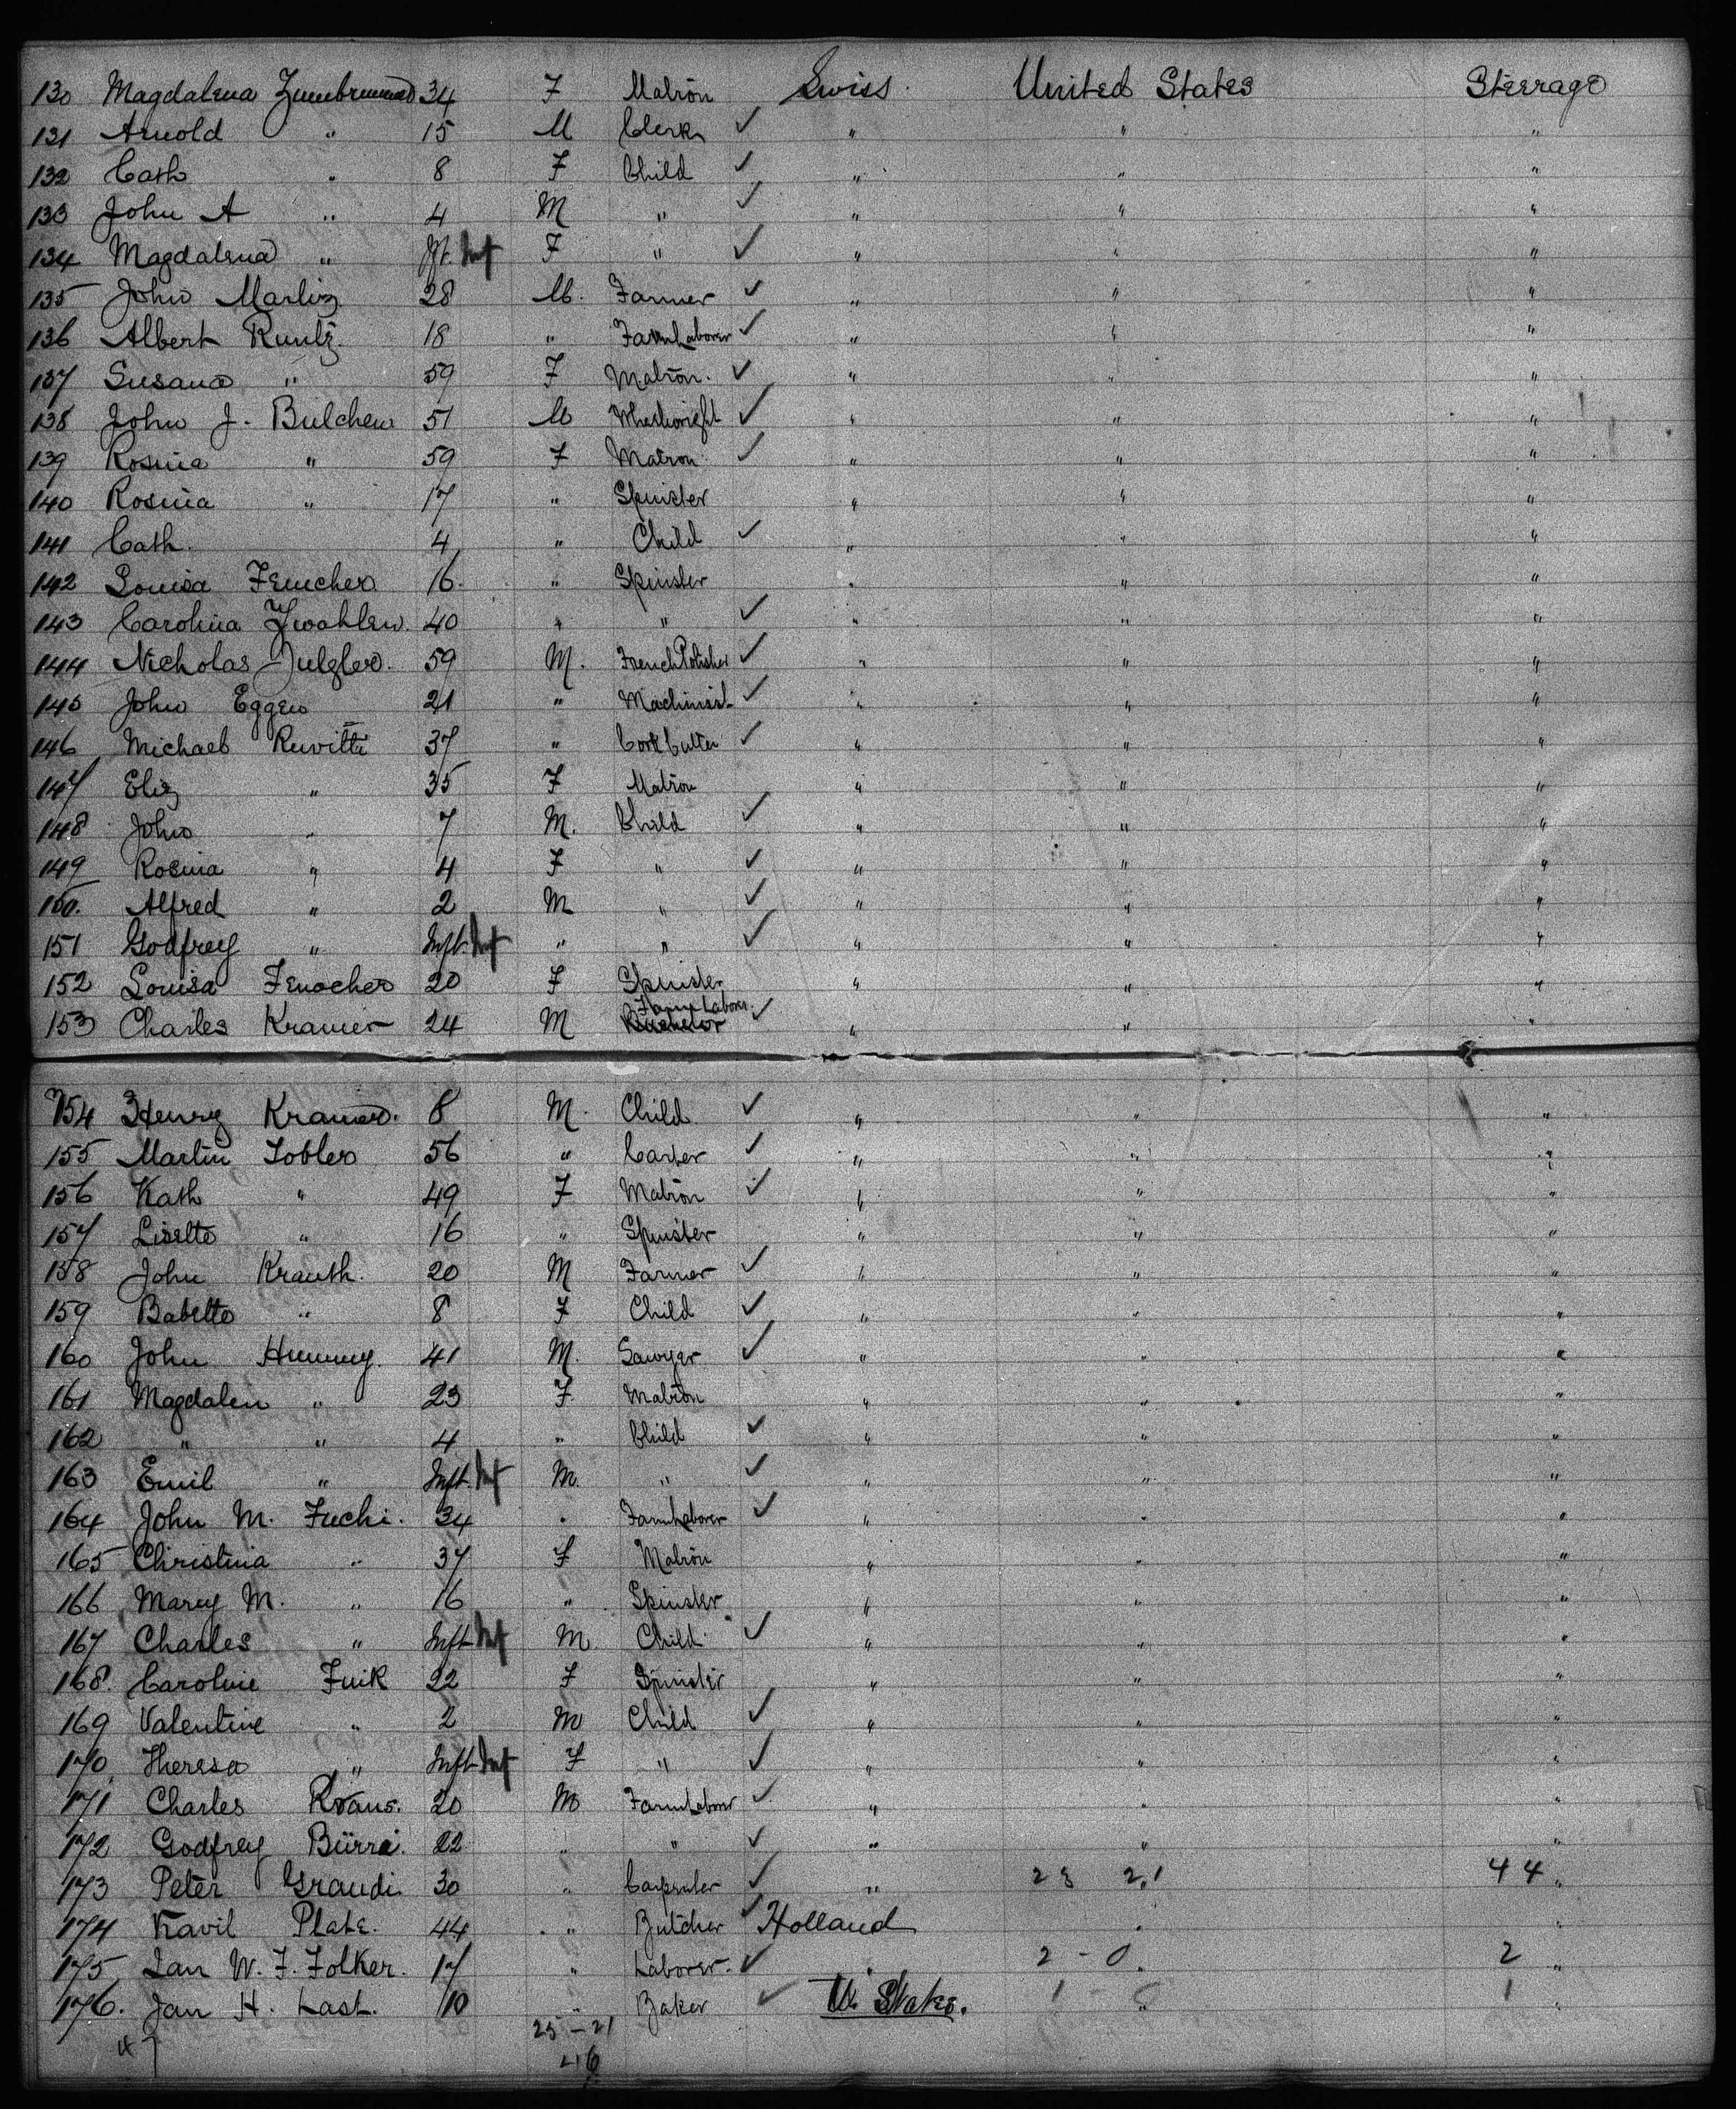 130 Magdalena Zumbrunnen 34 F Matron Swiss. United States Steerage
131 Arnold " 15 M Clerk ✓ " " "
132 Cath " 8 F Child ✓ " " "
133 John A " 4 M " ✓ " " "
134 Magdalena " Inft. Inf F " ✓ " " "
135 John Marling 28 M. Farmer ✓ " " "
136 Albert Runtz. 18 " Farm Laborer ✓ " " "
137 Susana " 59 F Matron. ✓ " " "
138 John J. Bulchen 51 M Wheelwright ✓ " " "
139 Rosina " 59 F Matron. ✓ " " "
140 Rosina " 17 " Spinster " " "
141 Cath. 4 " Child ✓ " " "
142 Louisa 16. " Spinster " " "
143 Carolina Zwahlen. 40 " " ✓ " " "
144 Nicholas 59 M. French Polisher ✓ " " "
145 John Eggen 21 " Machinist ✓ " " "
146 Michael Ruvitti 37 " Cork Cutter ✓ " " "
147 Eliz " 35 F Matron " " "
148 John " 7 M. Child ✓ " " "
149 Rosina " 4 F " ✓ " " "
150. Alfred " 2 M " ✓ " " "
151 Godfrey " Inft. Inf " " ✓ " " "
152 Louisa 20 F Spinster " " "
153 Charles Kramer 24 M Farm Laborer. ✓ " " "
154 Henry Kramer. 8 M. Child ✓ " " "
155 Martin Tobler 56 " Carter ✓ " " "
156 Kath " 49 F Matron ✓ " " "
157 Lisette " 16 " Spinster " " "
158 John Krauth. 20 M Farmer ✓ " " "
159 Babette " 8 F Child ✓ " " "
160 John Hummy. 41 M. Sawyer ✓ " " "
161 Magdalen " 23 F Matron " " "
162 " " 4 " Child ✓ " " "
163 Emil " Inft. Inf M. " ✓ " " "
164 John M. Fuchi. 34 " Farm Laborer ✓ " " "
165 Christina " 37 F Matron " " "
166 Mary M. " 16 " Spinster " " "
167 Charles " Inft Inf M Child ✓ " " "
168. Caroline Fuik 22 F Spinster " " "
169 Valentine " 2 M Child ✓ " " "
170 Theresa " Inft Inf F " ✓ " " "
171 Charles Kraus. 20 M Farm Laborer ✓ " " "
172 Godfrey Bürri. 22 " " ✓ " " "
173 Peter Graudi 30 " Carpenter ✓ " 23 21 44 "
174 Kavil Plate. 44 " Butcher ✓ Holland " "
175 Jan W. F. Folker. 17 " Laborer. ✓ " 2 - 0 " 2 "
176. Jan H. Last. 10 " Baker ✓ U. States. 1 - 0 " 1 "
25 - 21
47 46